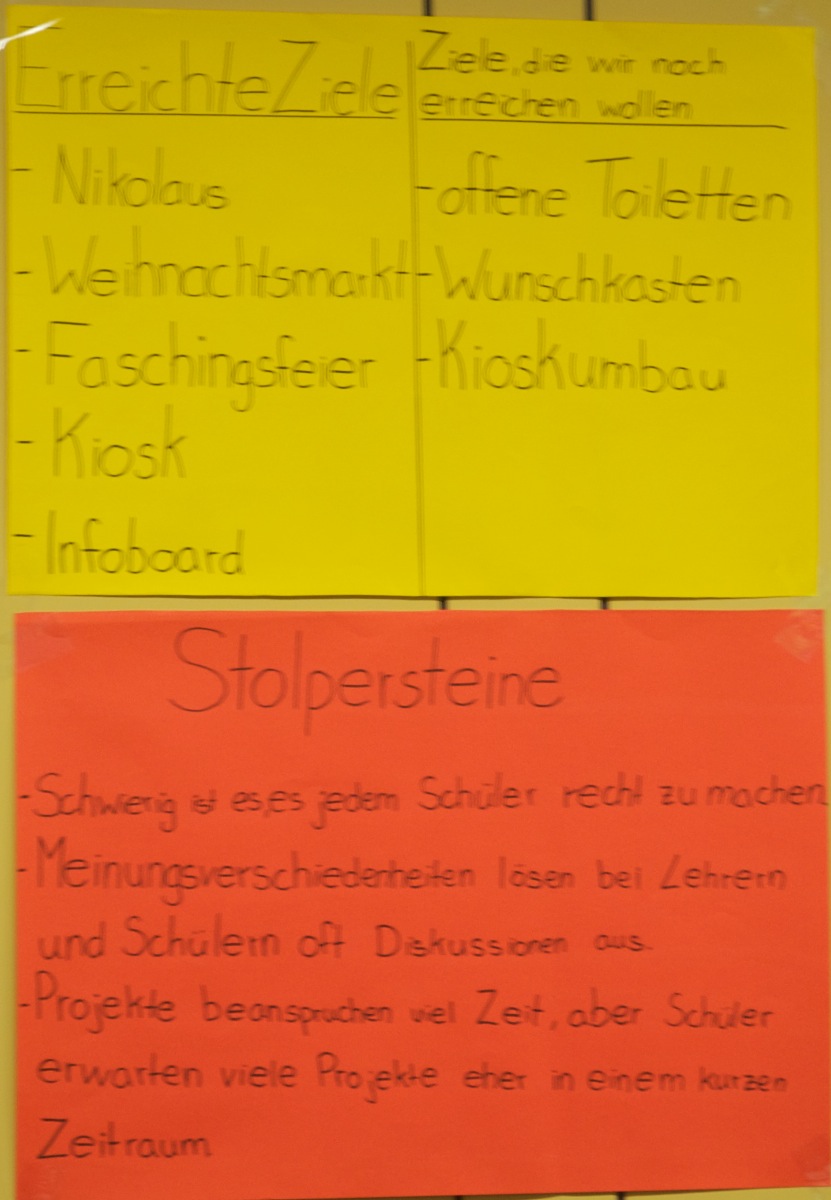 Erreichte Ziele
- Nikolaus
- Weihnachtsmarkt
- Faschingsfeier
- Kiosk
- Infoboard
Ziele, die wir noch
erreichen wollen
- offene Toiletten
- Wunschkasten
- Kioskumbau
Stolpersteine
- Schwierig ist es, es jedem Schüler recht zu machen
- Meinungsverschiedenheiten lösen bei Lehrern
und Schülern oft Diskussionen aus.
- Projekte beanspruchen viel Zeit, aber Schüler
erwarten viele Projekte eher in einem kurzen
Zeitraum